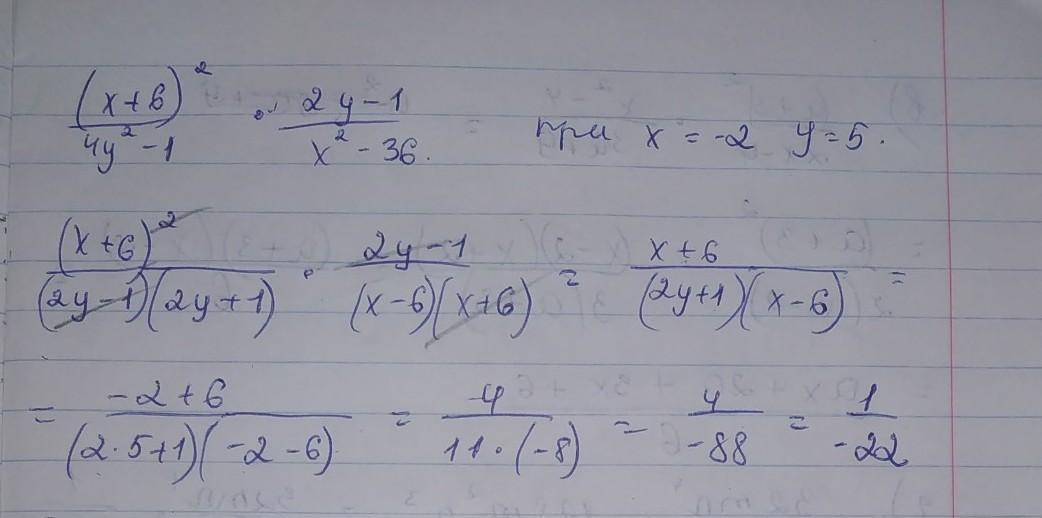 (x+6)²/(4y²-1) · (2y-1)/(x²-36) = при x = -2 y = 5.
(x+6)²/((2y-1)(2y+1)) · (2y-1)/((x-6)(x+6)) = (x+6)/((2y+1)(x-6)) =
= (-2+6)/((2·5+1)(-2-6)) = 4/(11·(-8)) = 4/(-88) = 1/(-22)